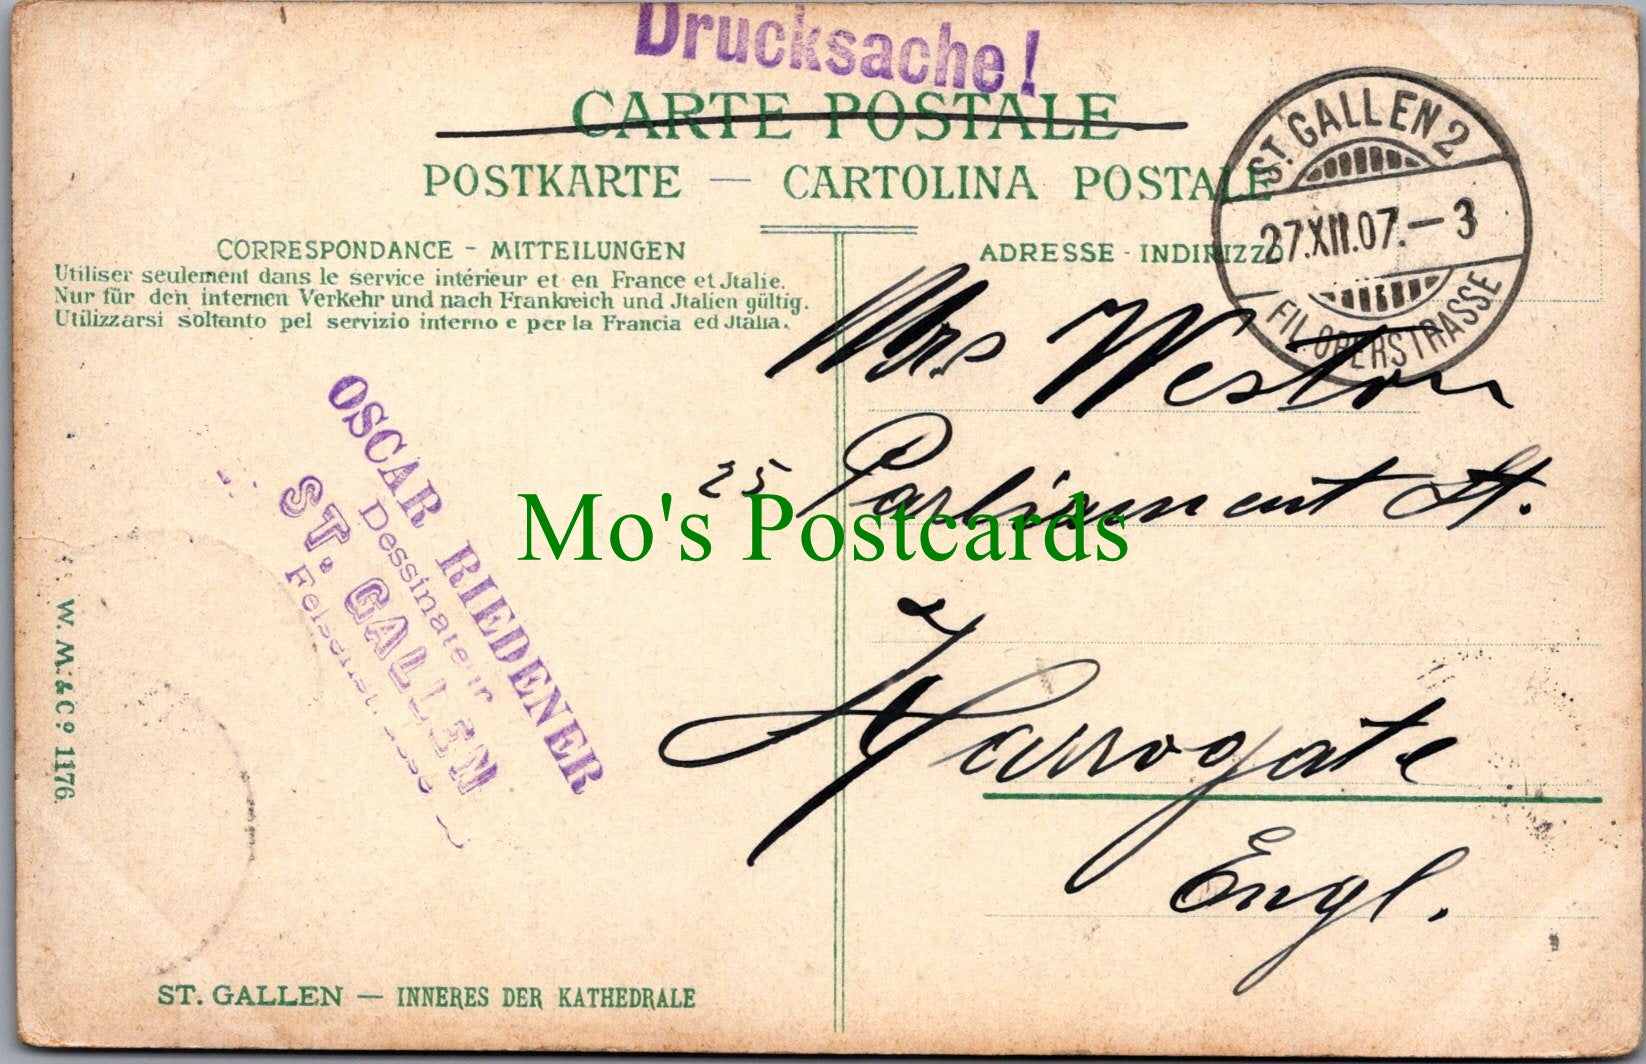 Drucksache!
CARTE POSTALE
POSTKARTE — CARTOLINA POSTALE
ST. GALLEN 2
27.XII.07.—3
FIL. OBERSTRASSE
CORRESPONDANCE - MITTEILUNGEN
Utiliser seulement dans le service intérieur et en France et Jtalie.
Nur für den internen Verkehr und nach Frankreich und Jtalien gültig.
Utilizzarsi soltanto pel servizio interno e per la Francia ed Jtalia.
ADRESSE - INDIRIZZO
Mrs Weston
25 Parliament St.
Harrogate
Engl.
OSCAR RIEDENER
Dessinateur
ST. GALLEN
Mo's Postcards
W. M. & Cº 1176.
ST. GALLEN — INNERES DER KATHEDRALE